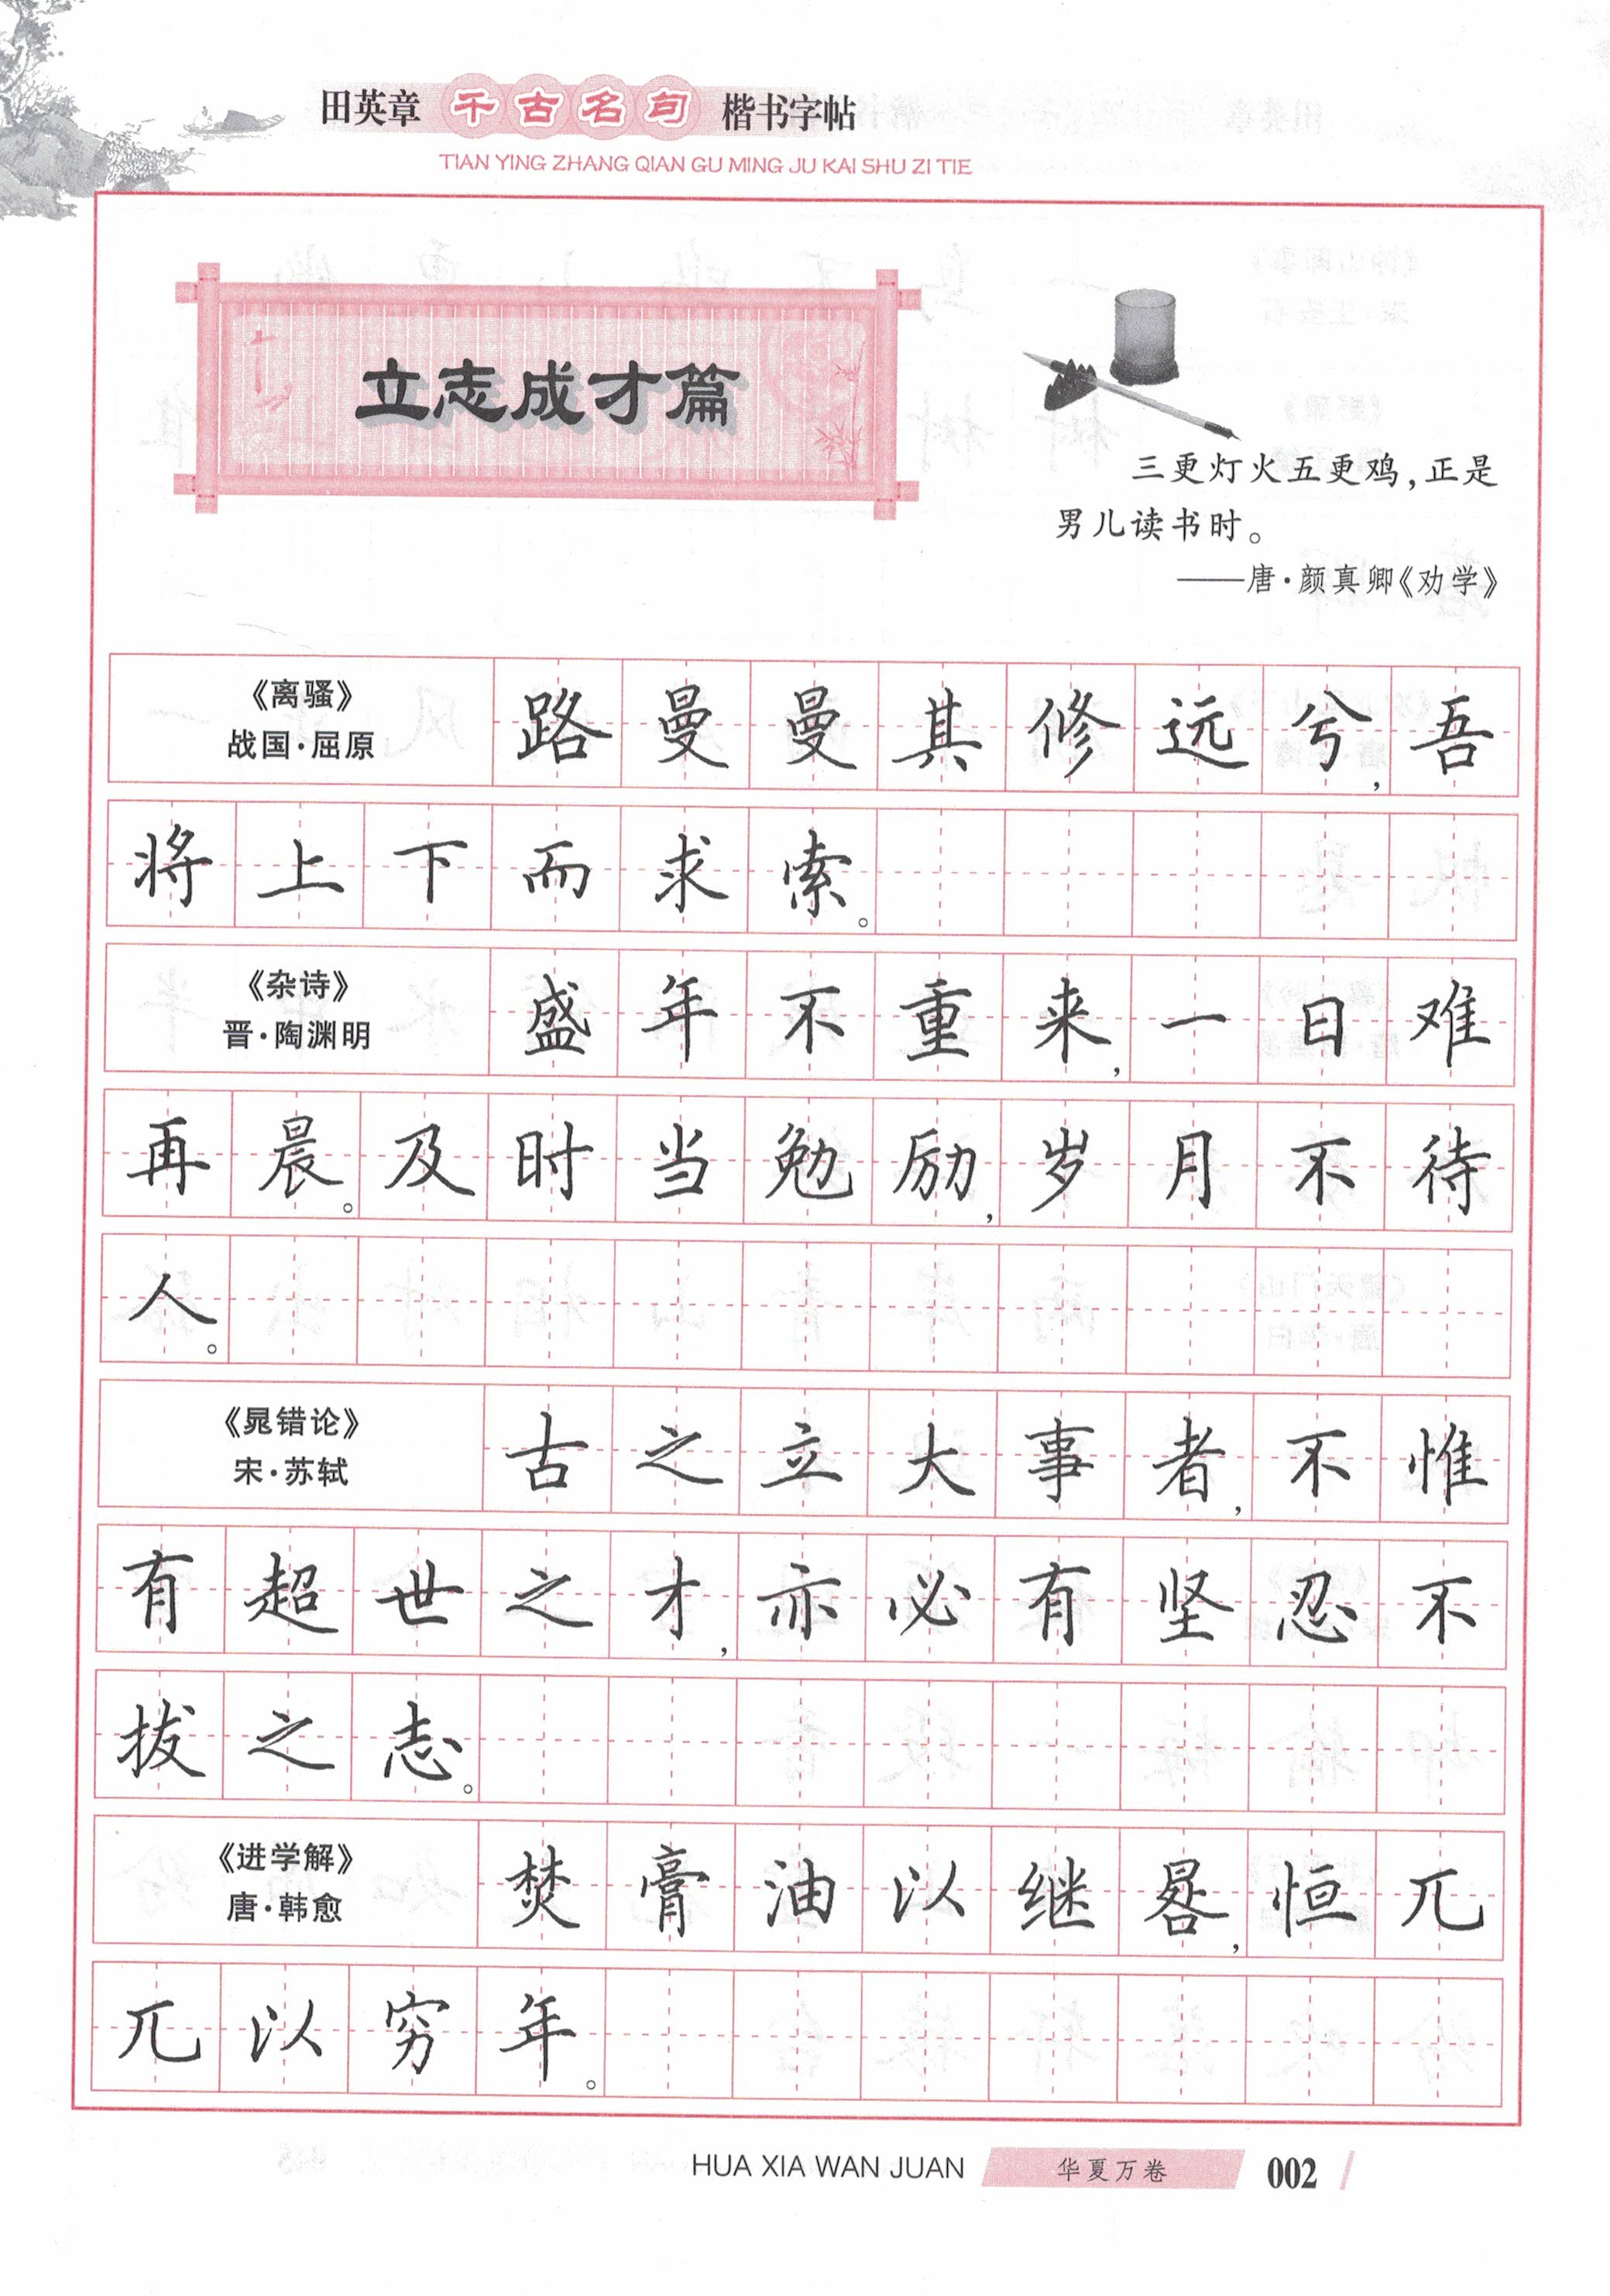 田英章 千古名句 楷书字帖
TIAN YING ZHANG QIAN GU MING JU KAI SHU ZI TIE
立志成才篇
三更灯火五更鸡,正是
男儿读书时。
——唐·颜真卿《劝学》
《离骚》
战国·屈原
路曼曼其修远兮,吾
将上下而求索。
《杂诗》
晋·陶渊明
盛年不重来,一日难
再晨。及时当勉励,岁月不待
人。
《晁错论》
宋·苏轼
古之立大事者,不惟
有超世之才,亦必有坚忍不
拔之志。
《进学解》
唐·韩愈
焚膏油以继晷,恒兀
兀以穷年。
HUA XIA WAN JUAN 华夏万卷 002